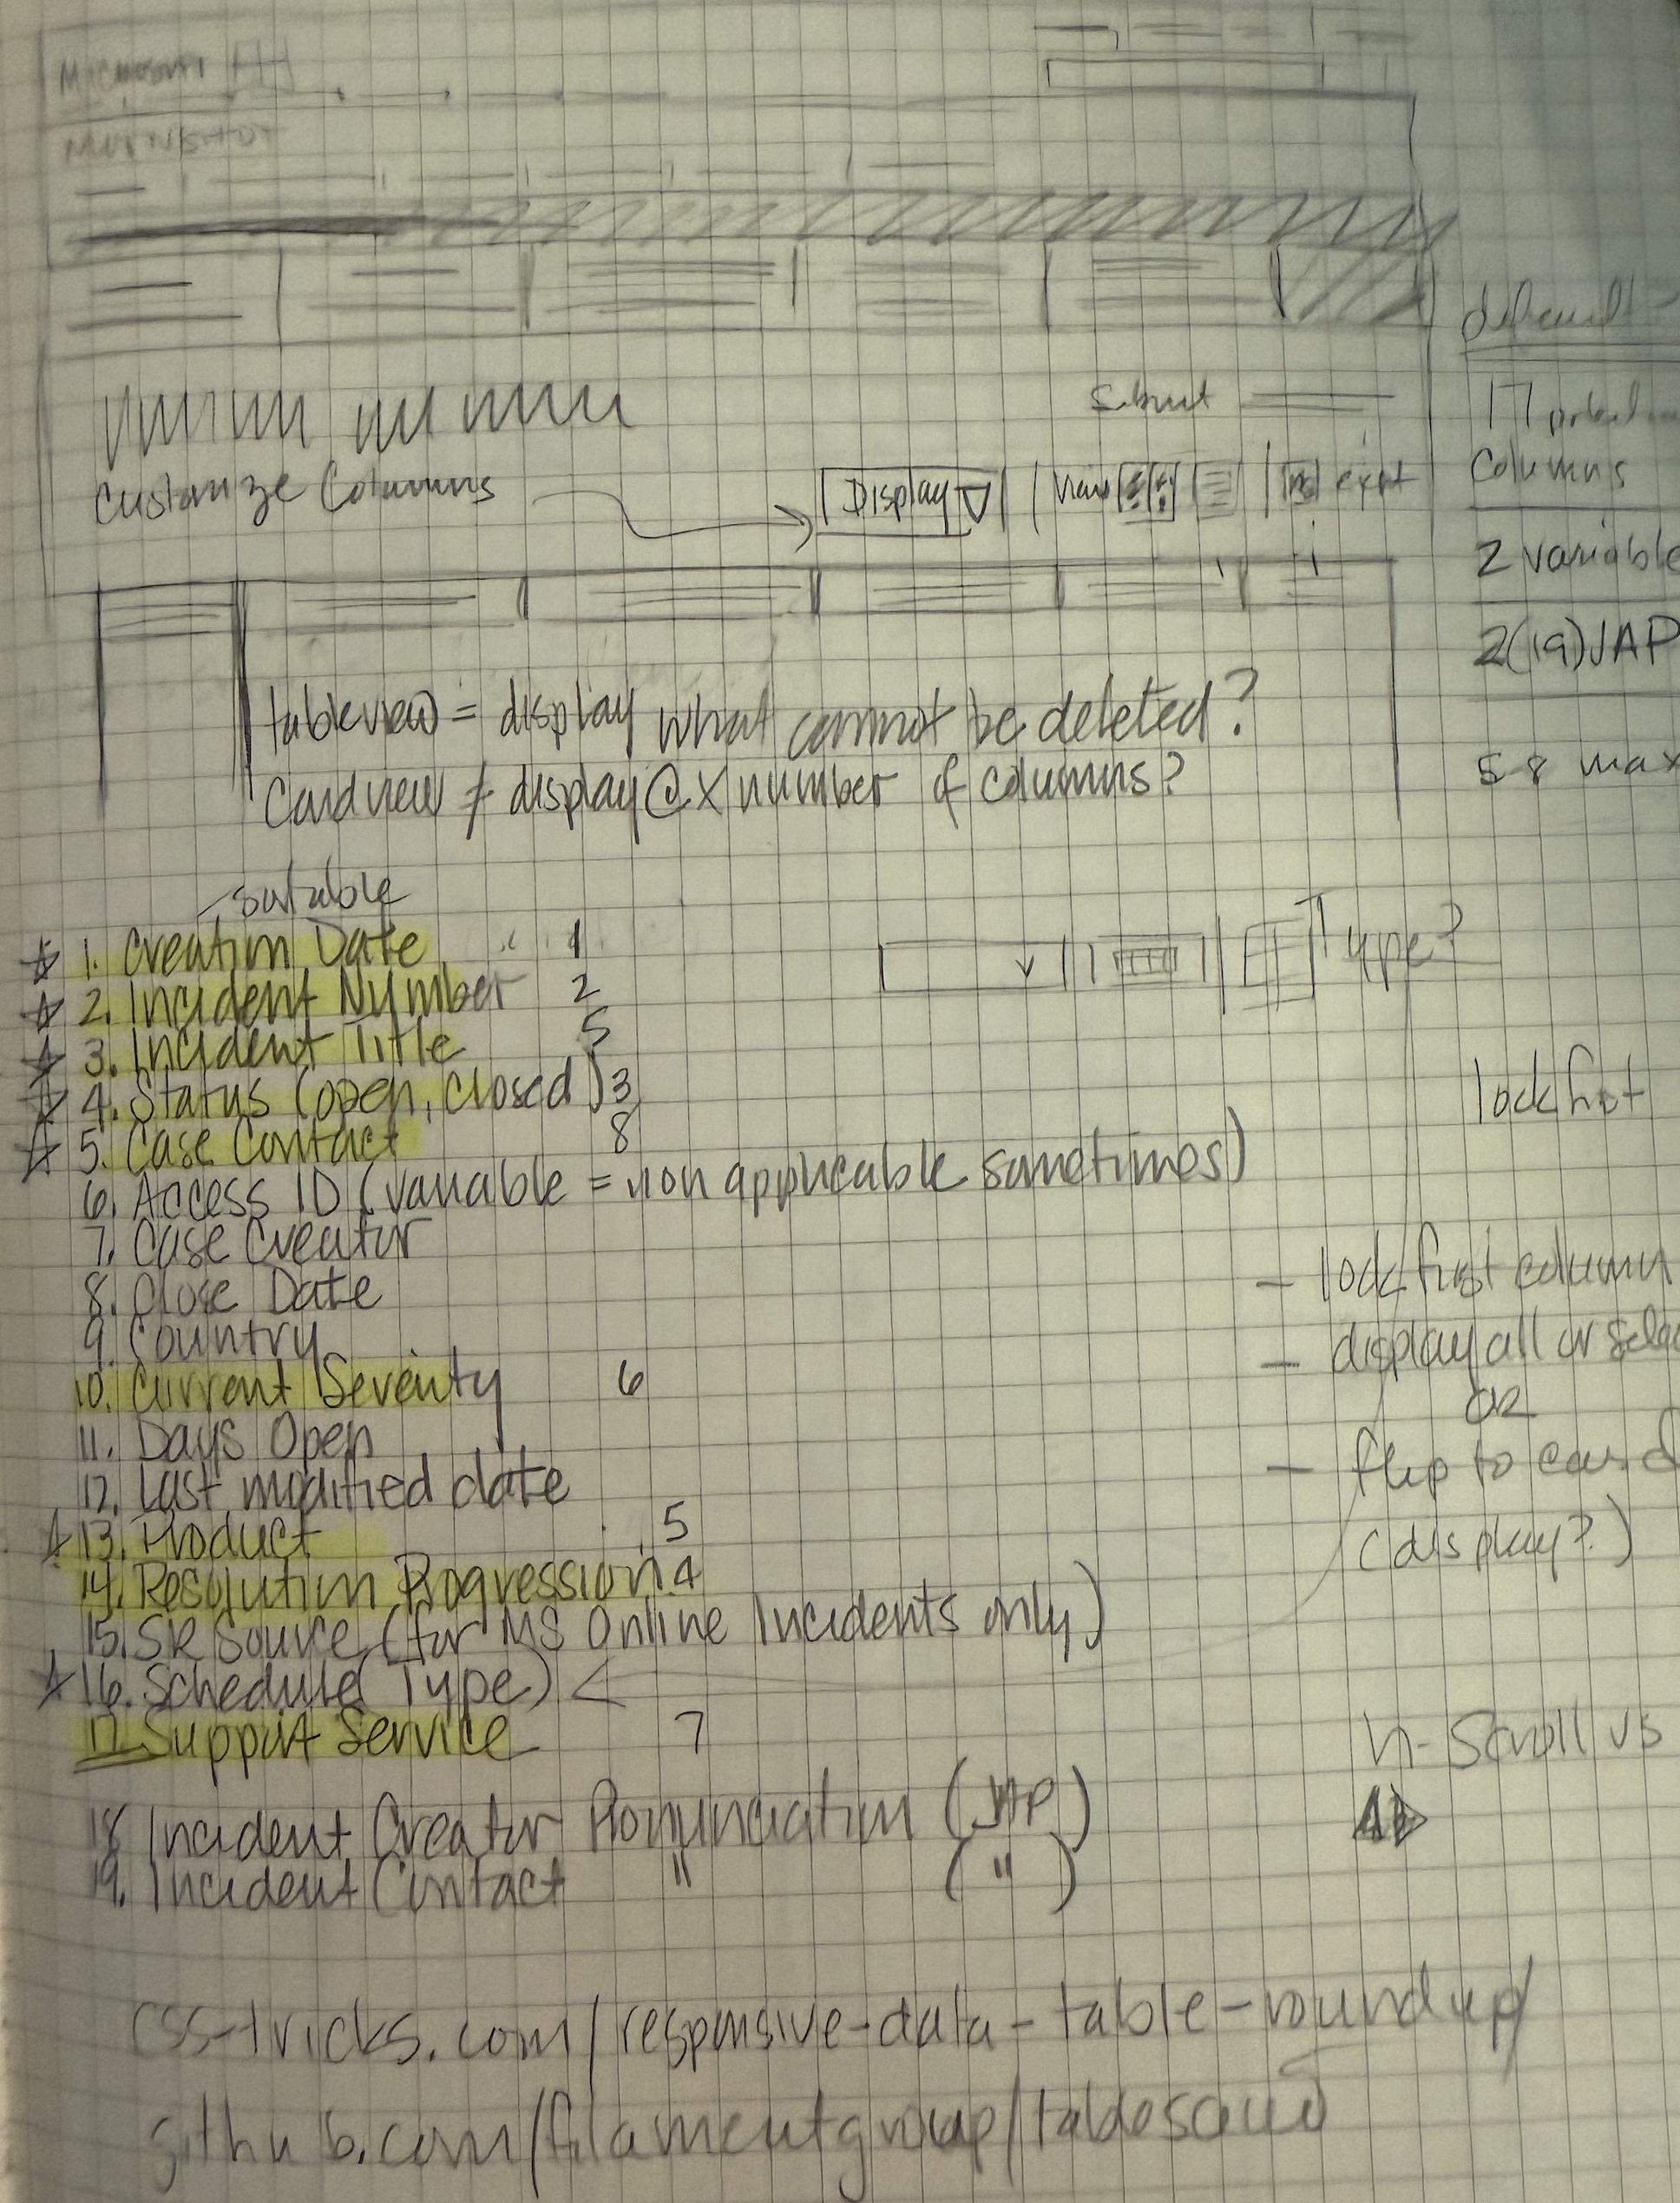 Microsoft
default
17
Columns
Customize Columns
Display
export
2 variable
2(19) JAP
tableview = display what cannot be deleted?
Cardview ≠ display @ X number of columns?
5-8 max
sortable
1. Creation Date 1
2. Incident Number 2
Type?
3. Incident Title 5
4. Status (open, closed) 3
lock first
5. Case Contact 8
6. Access ID (variable = non applicable sometimes)
7. Case Creator
- lock first column
8. Close Date
9. Country
- display all or
10. Current Severity 6
OR
11. Days Open
- flip to card
12. Last modified date
13. Product 5
(display?)
14. Resolution Progression 4
15. SR Source (for MS Online Incidents only)
16. Schedule (Type)
17. Support Service 7
h-scroll vs
18 Incident Creator Pronunciation (JAP)
19. Incident Contact " (")
css-tricks.com/responsive-data-table-roundup/
github.com/filamentgroup/tablesaw